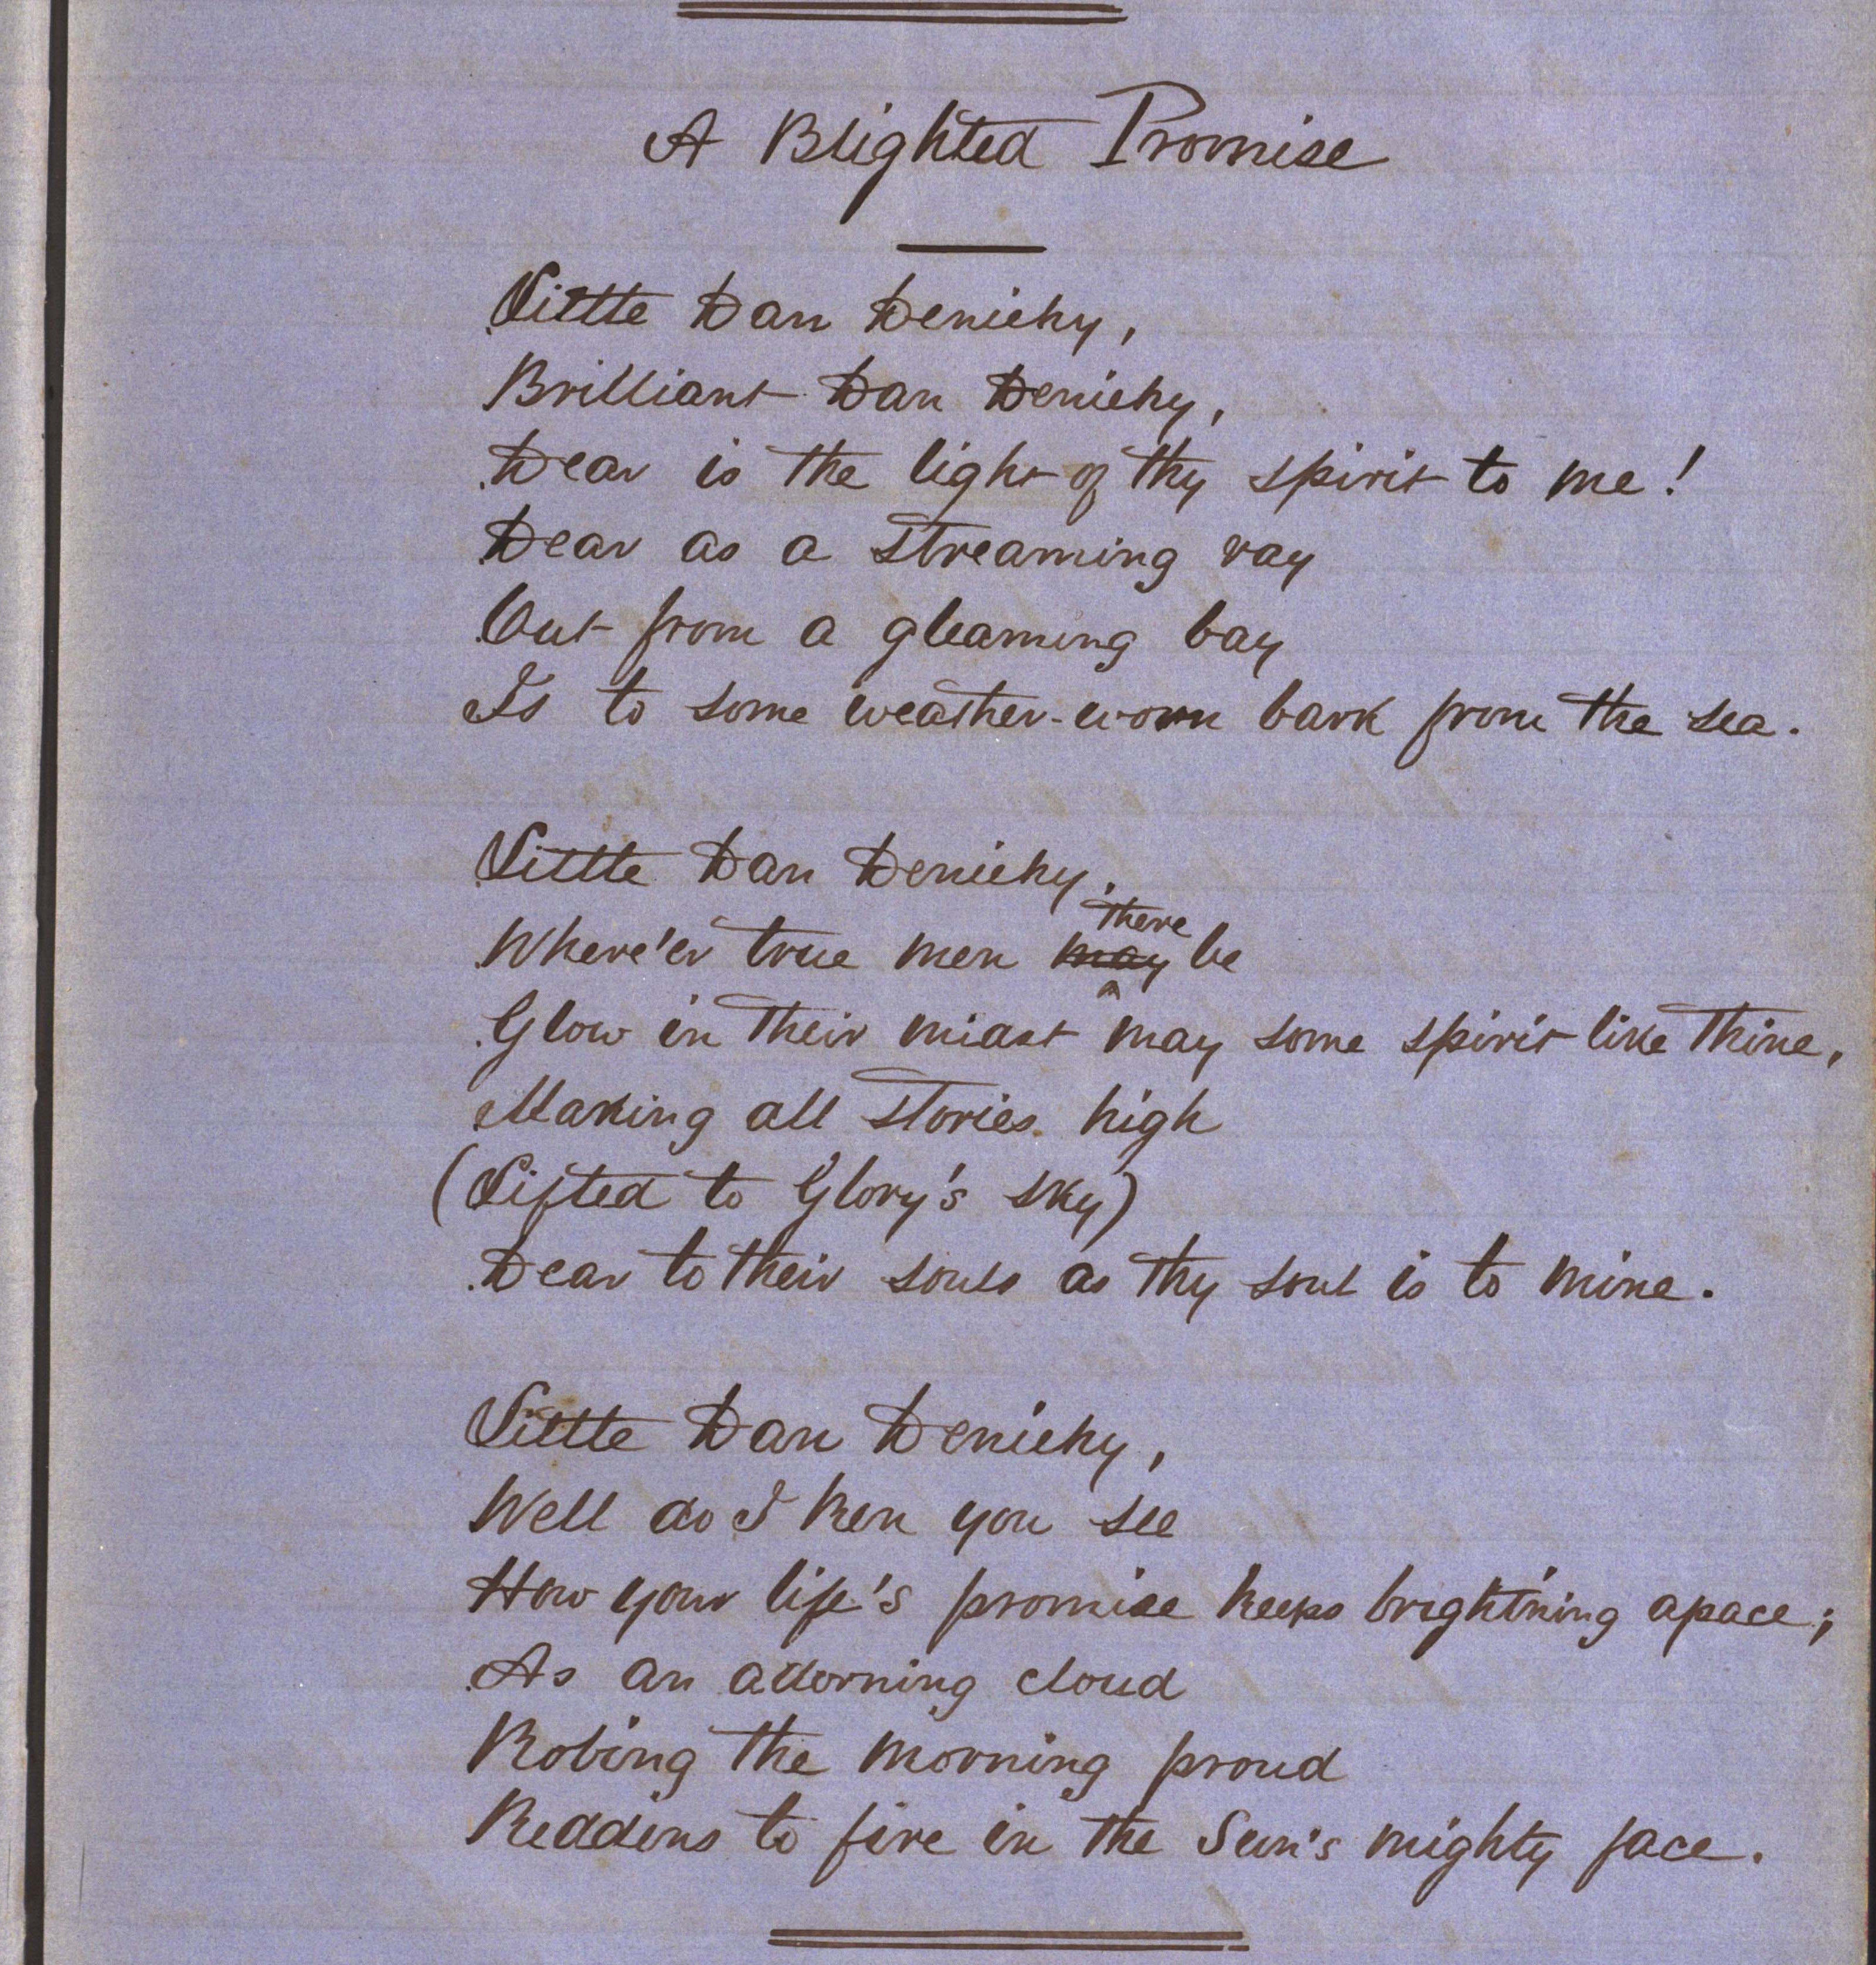 A Blighted Promise
Little Dan Deniehy,
Brilliant Dan Deniehy,
Dear is the light of thy spirit to me!
Dear as a streaming ray
Out from a gleaming bay
Is to some weather-worn bark from the sea.
Little Dan Deniehy,
there
Where'er true men may be
Glow in their midst may some spirit like thine,
Making all stories high
(Lifted to Glory's sky)
Dear to their souls as thy soul is to mine.
Little Dan Deniehy,
Well do I ken you see
How your life's promise keeps bright'ning apace;
As an adorning cloud
Robing the morning proud
Reddens to fire in the Sun's mighty face.